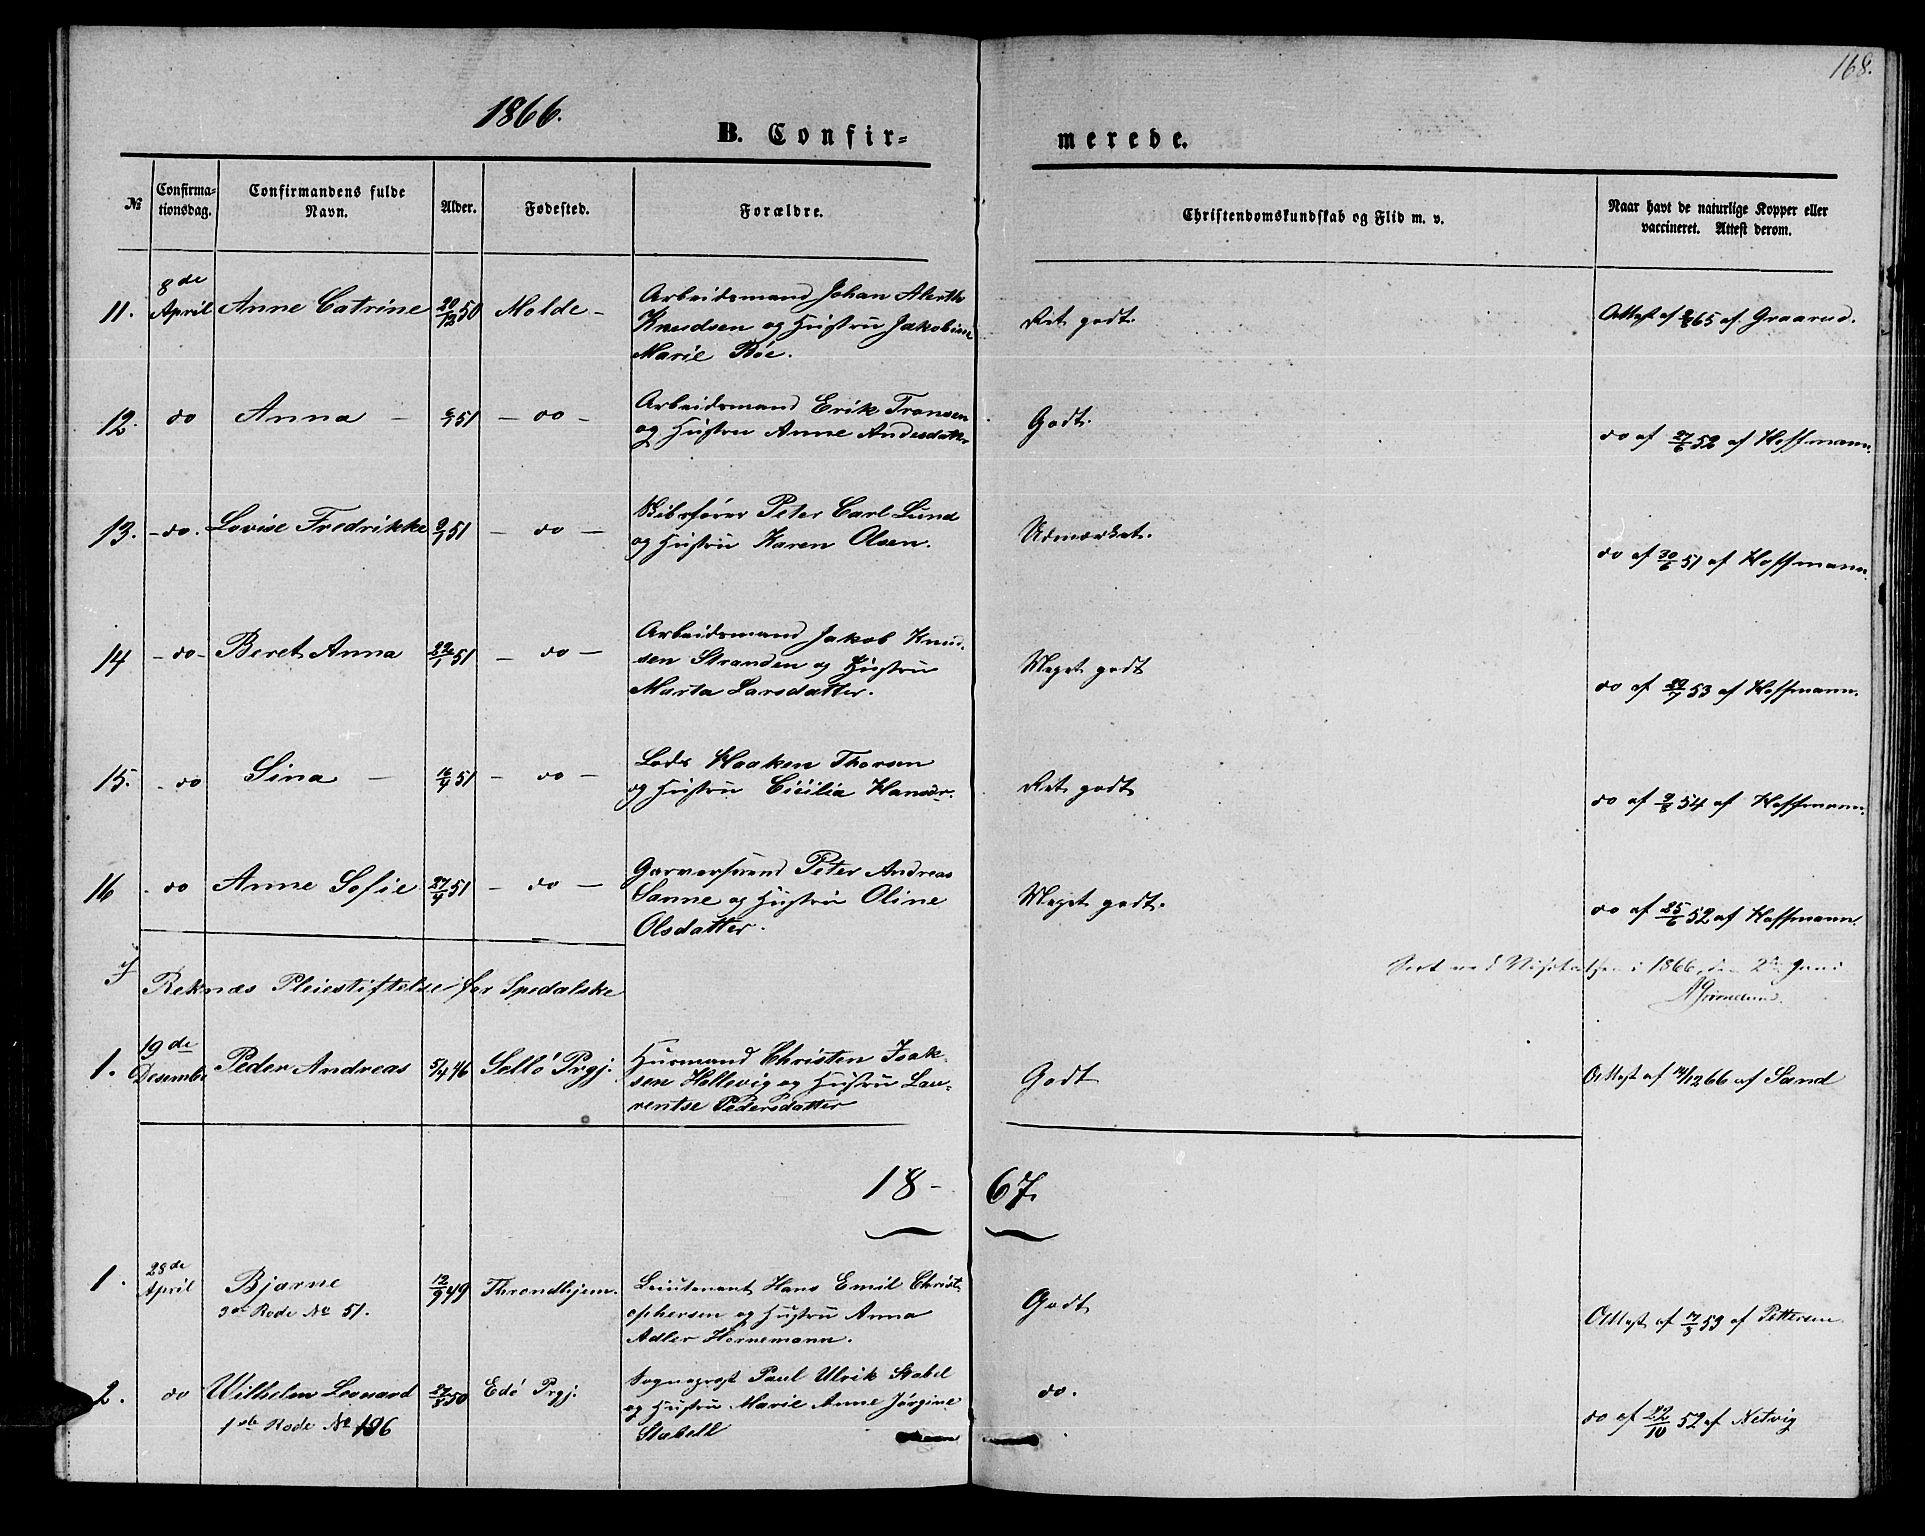 168.
1866.
B. Confir-
merede.
No
Confirma-
tionsdag.
Confirmandens fulde
Navn.
Alder.
Fødested.
Forældre.
Christendomskundskab og Flid m. v.
Naar havt de naturlige Kopper eller
vaccineret. Attest derom.
11. 8de April Anne Catrine 20/12 50 Molde - Arbeidsmand Johan Alerth
Knudsen og Hustru Jakobine
Marie Böe.
Ret godt. Attest af 65 af Graarud.
12. do Anna - 6/1 51 - do - Arbeidsmand Erik Tronsen
og Hustru Anne Andersdatter
Godt. do af 27/6 52 af Hoffmann.
13. - do. Lovise Fredrikke 9/1 51 - do - Peter Carl Lund
og Hustru Karen Olsen.
Udmærket. do af 30/6 51 af Hoffmann.
14 - do - Beret Anna 22/1 51 - do - Arbeidsmand Jakob Knud-
sen Stranden og Hustru
Marta Larsdatter.
Meget godt do af 20/7 53 af Hoffmann.
15. - do Sina - 16/4 51 - do - Lods Haaken Thorsen
og Hustru Cicilia Hansdr.
Ret godt do af 9/8 54 af Hoffmann.
16 - do Anne Sofie 27/4 51 - do - Garversvend Peter Andreas
Sanne og Hustru Oline
Olsdatter.
Meget godt. do af 25/6 52 af Hoffmann.
I
Reknæs Pleiestiftelse for Spedalske
Seet ved Visitatsen i 1866, den 2den Juni
1. 19de Desember Peder Andreas 5/4 46 Sellö Prgj. Husmand Christen Isak-
sen Hellevig og Hustru Lau-
rentse Pedersdatter
Godt Attest af 14/12 66 af Sand
18- 67.
1. 28de April Bjarne 12/9 49 Throndhjem. Lieutenant Hans Emil Christ-
3de Rode No 51. ophersen og Hustru Anna
Adler Hornemann.
Godt Attest af 7/3 53 af Pettersen
2. do Wilhelm Leonard 27/8 50 Edö Prgj. Sogneprest Paul Ulrik Stabel
1ste Rode No 196 og Hustru Marie Anne Jørgine
Stabell
do. do af 22/10 52 af Netvig